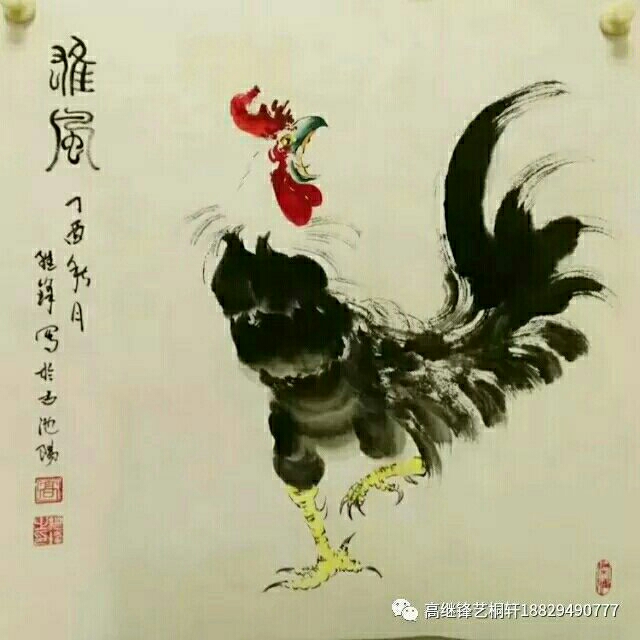 雄風
丁酉秋月
继锋写於古池陽
高
高继锋艺桐轩18829490777